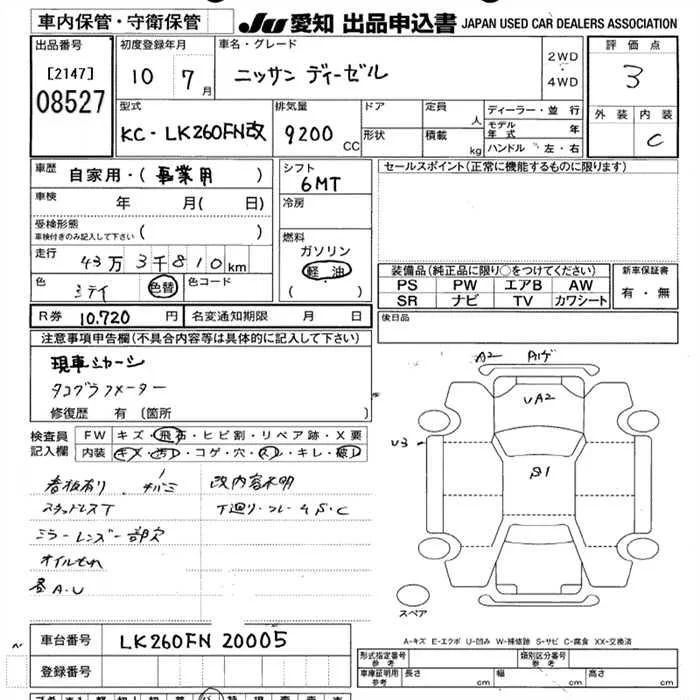 車内保管・守衛保管
JU 愛知 出品申込書 JAPAN USED CAR DEALERS ASSOCIATION
出品番号
[2147]
08527
初度登録年月
10 7月
車名・グレード
ニッサン ディーゼル
2WD
・
4WD
評価点
3
外装 内装
C
型式
KC-LK260FN改
排気量
9200 CC
ドア
形状
定員 人
積載 kg
ディーラー・並行
モデル年式 年
ハンドル 左・右
車歴
自家用・(事業用)
車検 年 月( 日)
受検形態
車検付きのみ記入して下さい ( )
走行
43万3千810km
色 色替 色コード
R券 10.720 円 名変通知期限 月 日
シフト
6MT
冷房
燃料
ガソリン
軽油
( )
セールスポイント(正常に機能するものに限ります)
装備品(純正品に限り○をつけてください)
PS PW エアB AW
SR ナビ TV カワシート
新車保証書
有・無
後日品
注意事項申告欄(不具合内容等は具体的に記入して下さい)
現車シカーシ
タコグラフメーター
修復歴 有(箇所
検査員記入欄
FW キズ・飛石・ヒビ割・リペア跡・X要
内装 キズ・汚レ・コゲ・穴・スレ・キレ・破レ
看板有り 改内容不明
スタッドレスT 下廻り・フレームS・C
ミラーレンズ一部欠
オイルもれ
A.U
A2
UA2
U3
S1
スペア
A-キズ E-エクボ U-凹み W-補修跡 S-サビ C-腐食 XX-交換済
車台番号 LK260FN 20005
登録番号
形式指定番号 参考
類別区分番号 参考
車庫証明用 参考 長さ cm 幅 cm 高さ cm